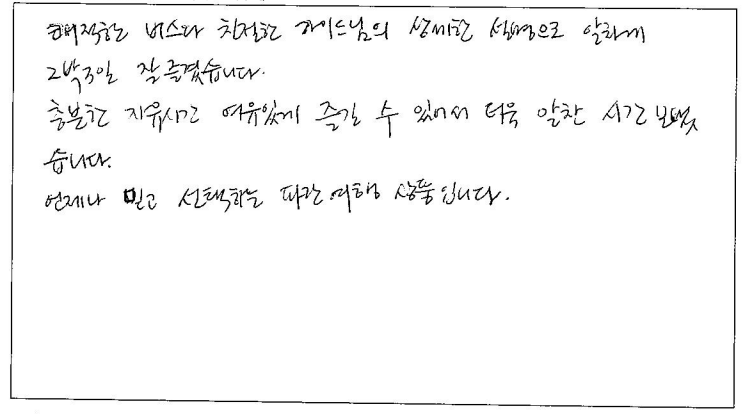 쾌적한 버스와 친절한 가이드님의 상세한 설명으로 알차게
2박3일 잘 즐겼습니다.
충분한 자유시간 여유있게 즐길 수 있어서 더욱 알찬 시간 보냈
습니다.
언제나 믿고 선택하는 여행 상품입니다.